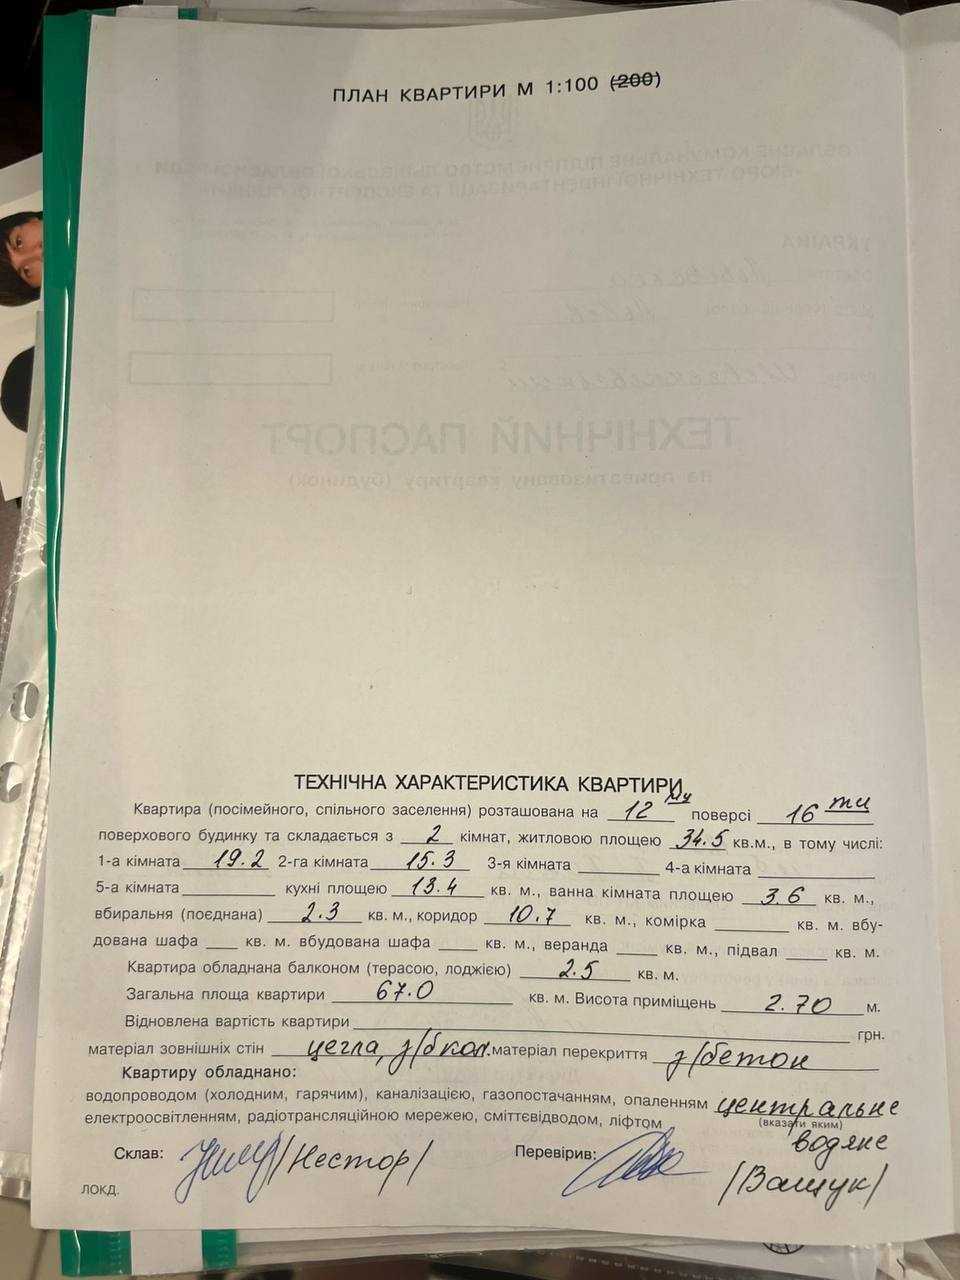 ПЛАН КВАРТИРИ М 1:100 (200)
ТЕХНІЧНА ХАРАКТЕРИСТИКА КВАРТИРИ
Квартира (посімейного, спільного заселення) розташована на 12му поверсі 16ти
поверхового будинку та складається з 2 кімнат, житловою площею 34.5 кв.м., в тому числі:
1-а кімната 19.2 2-га кімната 15.3 3-я кімната 4-а кімната
5-а кімната кухні площею 13.4 кв. м., ванна кімната площею 3.6 кв. м.,
вбиральня (поєднана) 2.3 кв. м., коридор 10.7 кв. м., комірка кв. м. вбу-
дована шафа кв. м. вбудована шафа кв. м., веранда кв. м., підвал кв. м.
Квартира обладнана балконом (терасою, лоджією) 2.5 кв. м.
Загальна площа квартири 67.0 кв. м. Висота приміщень 2.70 м.
Відновлена вартість квартири грн.
матеріал зовнішніх стін цегла, з/б кол. матеріал перекриття з/бетон
Квартиру обладнано:
водопроводом (холодним, гарячим), каналізацією, газопостачанням, опаленням центральне
електроосвітленням, радіотрансляційною мережею, сміттєвідводом, ліфтом (вказати яким)
водяне
Склав: /Нестор/ Перевірив: /Ващук/
ЛОКД.
ТЕХНІЧНИЙ ПАСПОРТ
на приватизовану квартиру (будинок)
УКРАЇНА